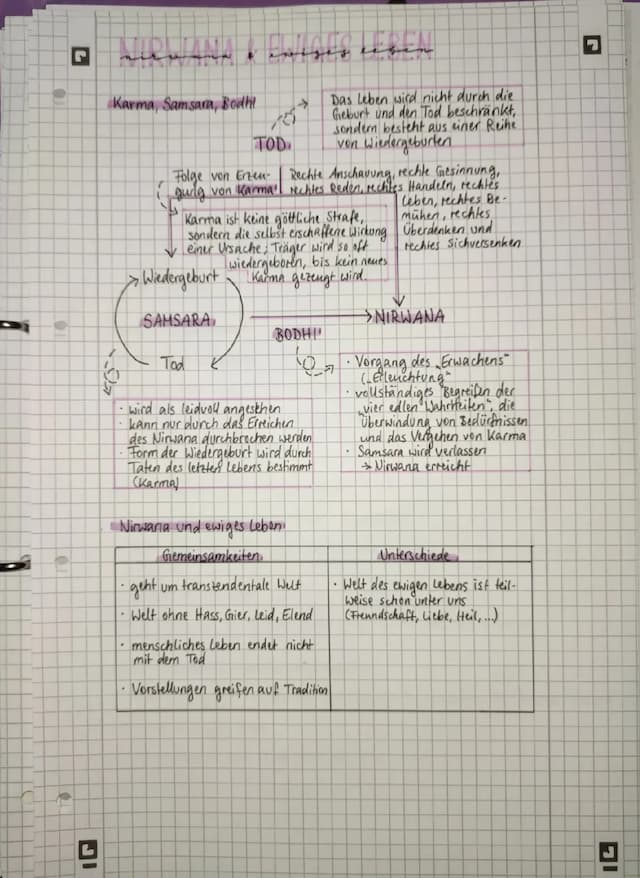 NIRWANA & EWIGES LEBEN
nirwana & ewiges leben
Karma, Samsara, Bodhi
Das Leben wird nicht durch die
Geburt und den Tod beschränkt,
sondern besteht aus einer Reihe
von Wiedergeburten
TOD
Folge von Erzeu-
gung von Karma
Rechte Anschauung, rechte Gesinnung,
rechtes Reden, rechtes Handeln, rechtes
Leben, rechtes Be-
mühen, rechtes
Überdenken und
rechtes Sichversenken
Karma ist keine göttliche Strafe,
sondern die selbst erschaffene Wirkung
einer Ursache; Träger wird so oft
wiedergeboren, bis kein neues
Karma gezeugt wird.
Wiedergeburt
SAMSARA
Tod
BODHI
NIRWANA
· Vorgang des „Erwachens"
(„Erleuchtung")
· vollständiges Begreifen der
„vier edlen Wahrheiten", die
Überwindung von Bedürfnissen
und das Vergehen von Karma
· Samsara wird verlassen
→ Nirwana erreicht
· wird als leidvoll angesehen
· kann nur durch das Erreichen
des Nirwana durchbrochen werden
· Form der Wiedergeburt wird durch
Taten des letzten Lebens bestimmt
(Karma)
Nirwana und ewiges Leben
Gemeinsamkeiten
· geht um transtendentale Welt
· Welt ohne Hass, Gier, Leid, Elend
· menschliches Leben endet nicht
mit dem Tod
· Vorstellungen greifen auf Tradition
Unterschiede
· Welt des ewigen Lebens ist teil-
weise schon unter uns
(Freundschaft, Liebe, Heil, ...)